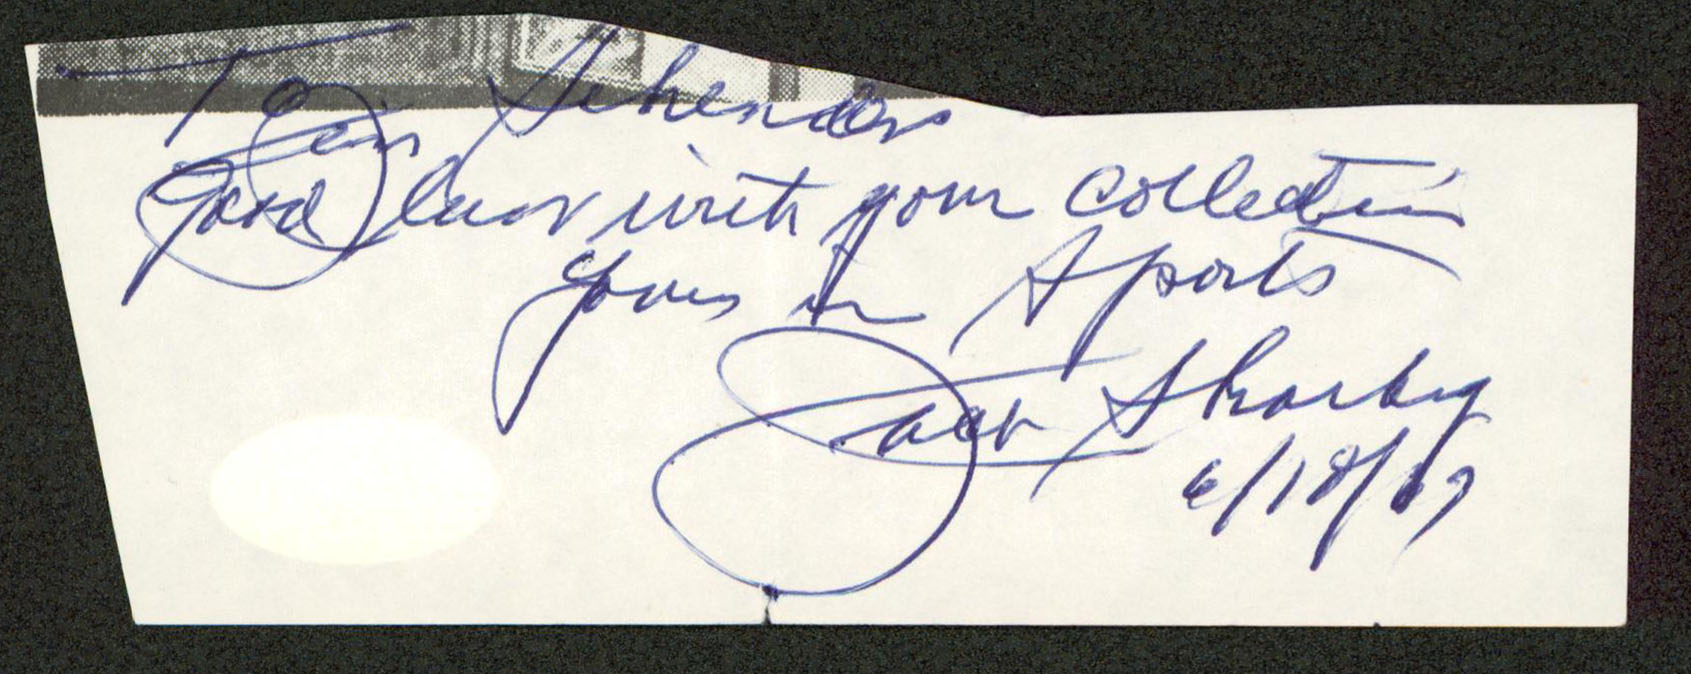 To Jim
Good luck with your collection
Yours in Sports
Jack Sharkey
6/18/69